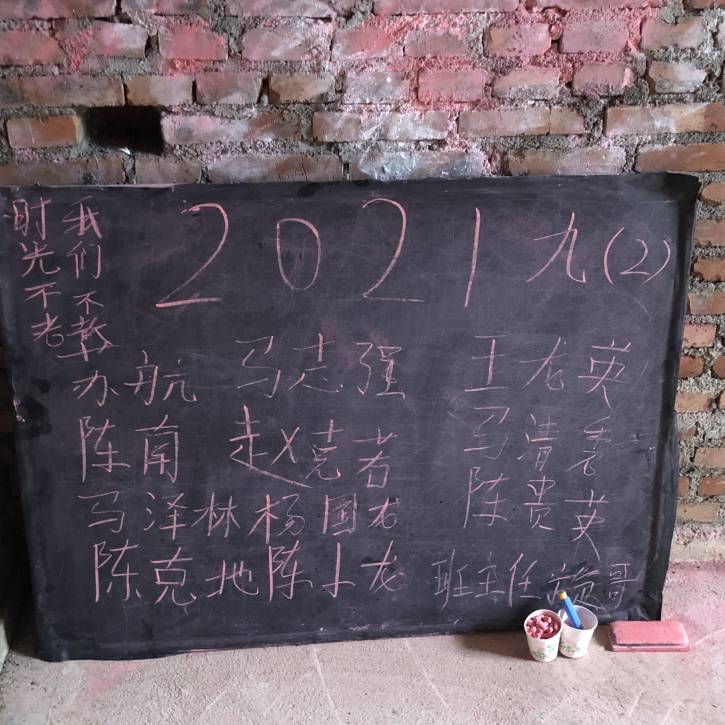 时光不老
我们不散
2021 九(2)
苏航 马志强 王龙英
陈南 赵克者 马清秀
马泽林 杨国龙 陈贵英
陈克地 陈小龙 班主任 旋哥